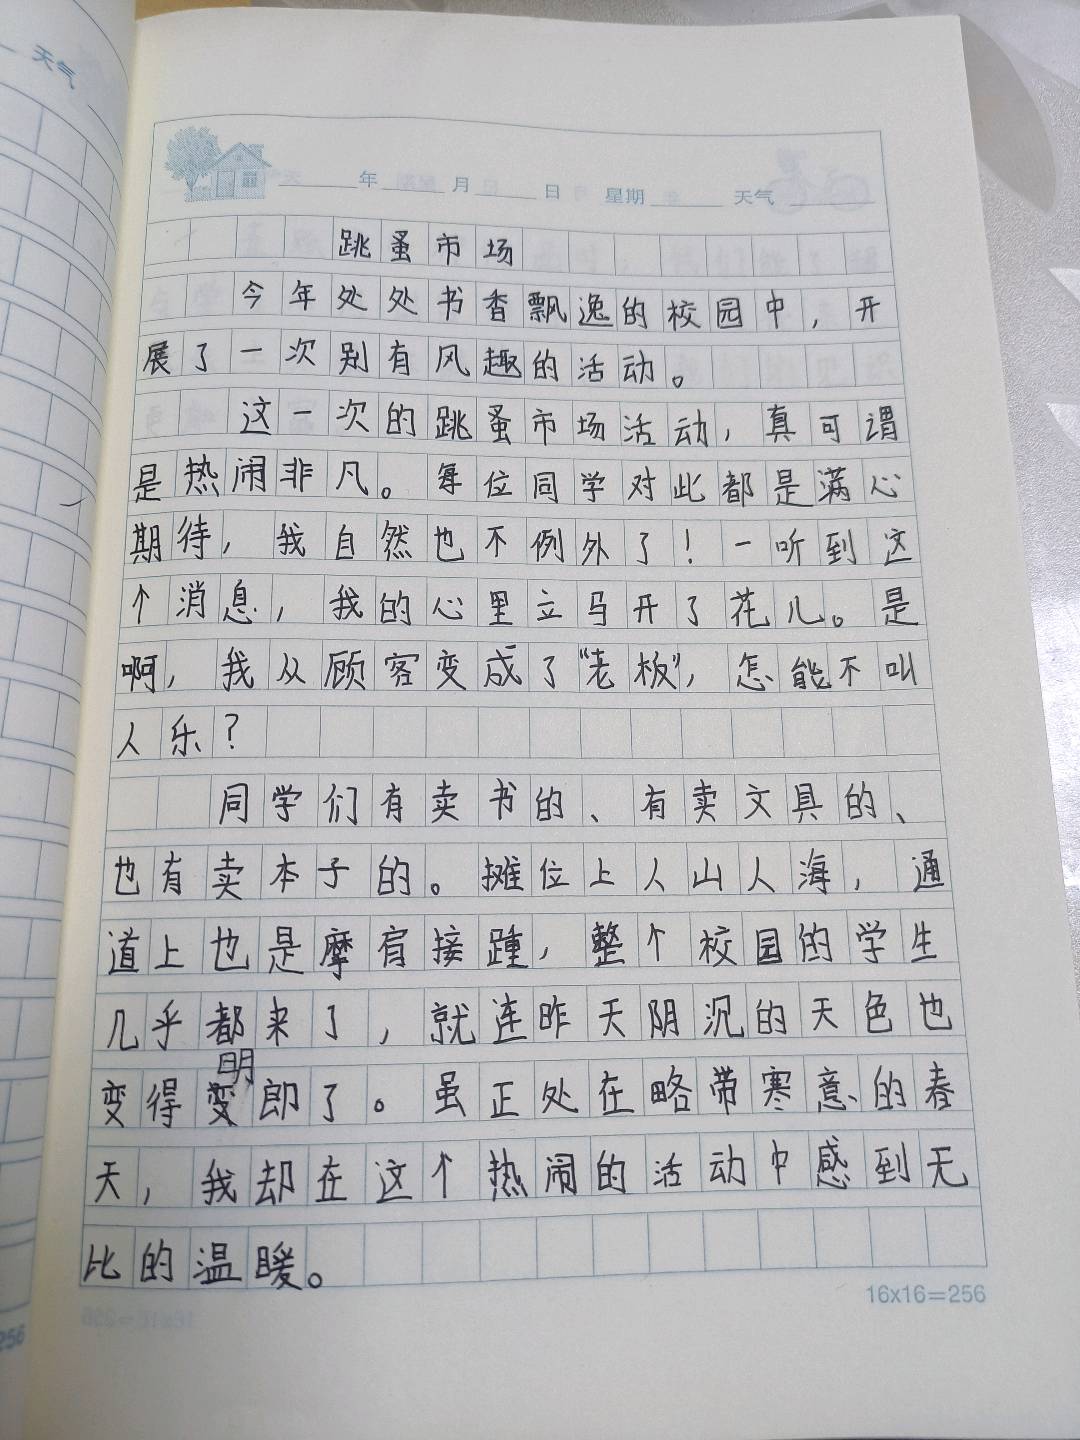 天气
年 月 日 星期 天气
跳蚤市场
今年处处书香飘逸的校园中，开
展了一次别有风趣的活动。
这一次的跳蚤市场活动，真可谓
是热闹非凡。每位同学对此都是满心
期待，我自然也不例外了！一听到这
个消息，我的心里立马开了花儿。是
啊，我从顾客变成了“老板”，怎能不叫
人乐？
同学们有卖书的、有卖文具的、
也有卖本子的。摊位上人山人海，通
道上也是摩肩接踵，整个校园的学生
几乎都来了，就连昨天阴沉的天色也
变得明郎了。虽正处在略带寒意的春
天，我却在这个热闹的活动中感到无
比的温暖。
16x16=256
256